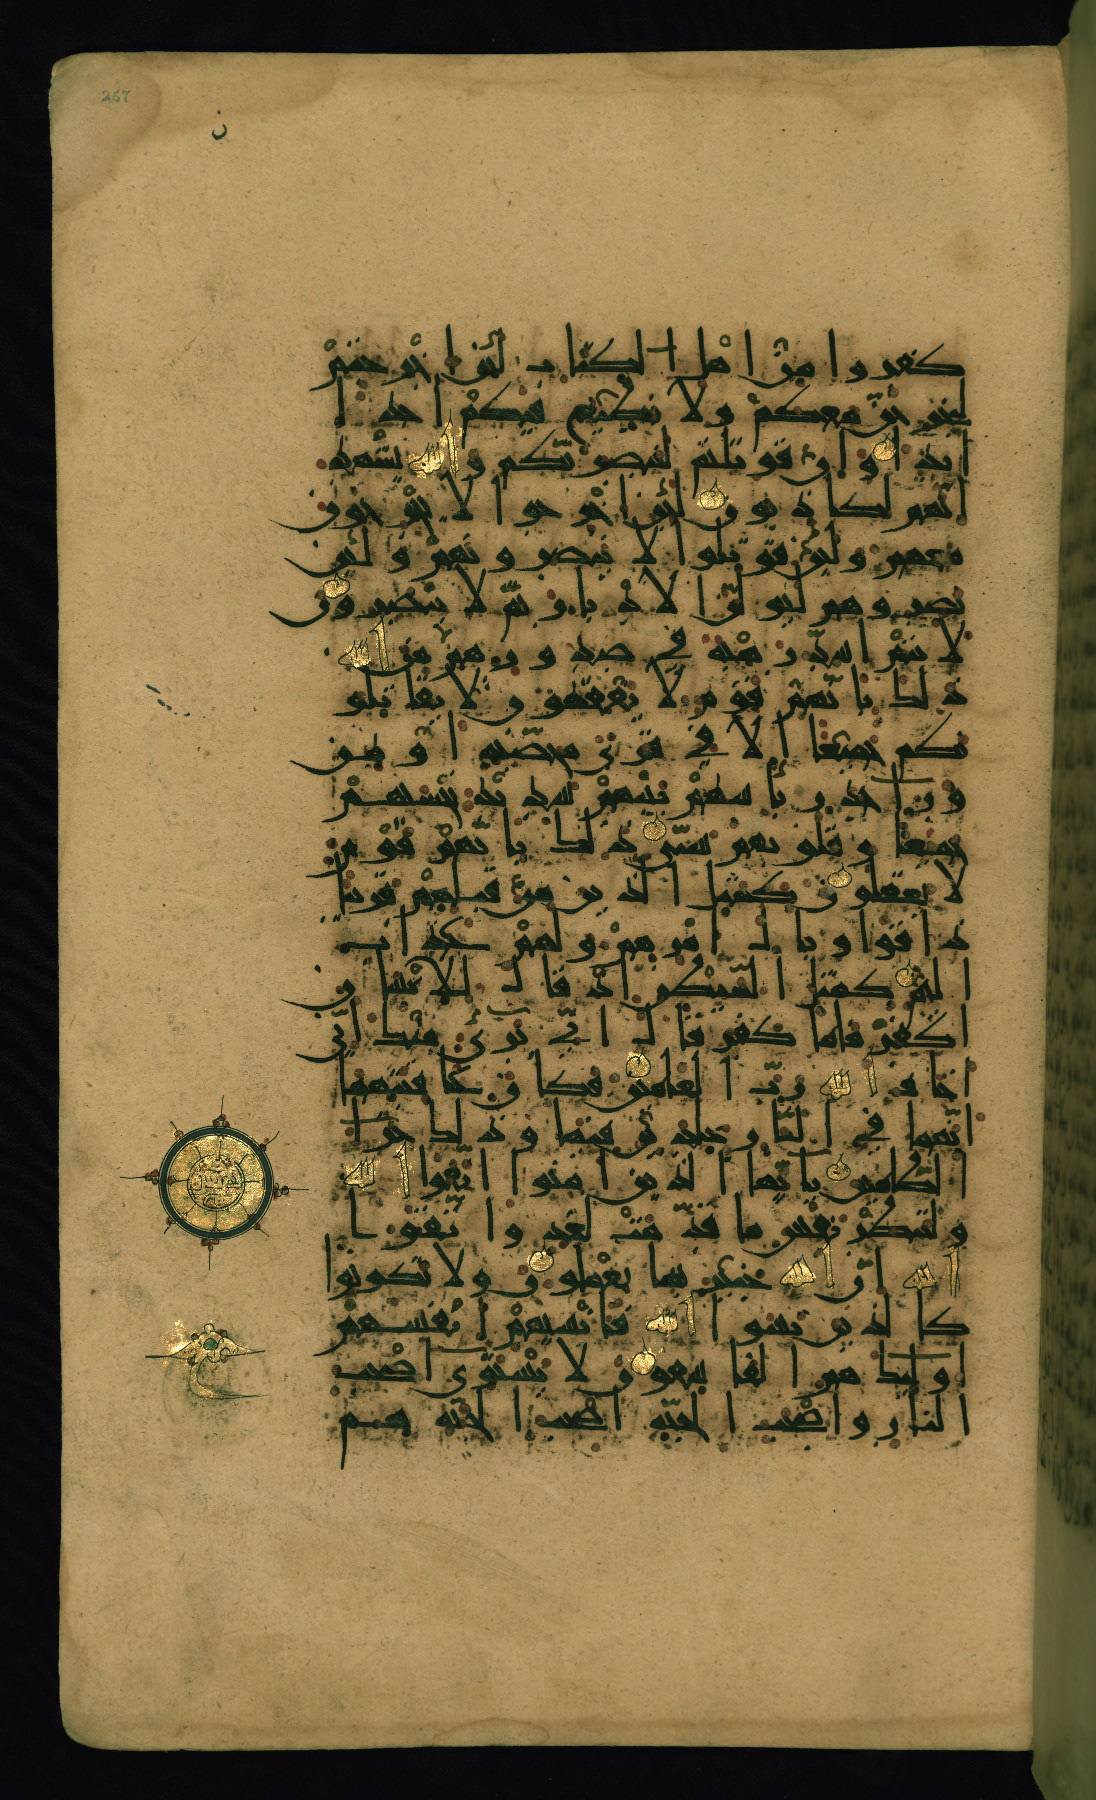 257
ن
كفروا من اهل الكتاب لئن اخرجتم
لنخرجن معكم ولا نطيع فيكم احدا
ابدا وان قوتلتم لننصرنكم والله يشهد
انهم لكاذبون لئن اخرجوا لا يخرجون
معهم ولئن قوتلوا لا ينصرونهم ولئن
نصروهم ليولن الادبار ثم لا ينصرون
لانتم اشد رهبة في صدورهم من الله
ذلك بانهم قوم لا يفقهون ولا يقاتلو
نكم جميعا الا في قرى محصنة او من
وراء جدر بأسهم بينهم شديد تحسبهم
جميعا وقلوبهم شتى ذلك بانهم قوم
لا يعقلون كمثل الذين من قبلهم قريبا
ذاقوا وبال امرهم ولهم عذاب
اليم كمثل الشيطن اذ قال للانسان
اكفر فلما كفر قال اني برئ منك اني
اخاف الله رب العلمين فكان عاقبتهما
انهما في النار خلدين فيها وذلك جزاء
الظلمين يايها الذين امنوا اتقوا الله
ولتنظر نفس ما قدمت لغد واتقوا
الله ان الله خبير بما تعملون ولا تكونوا
كالذين نسوا الله فانسيهم انفسهم
اولئك هم الفاسقون لا يستوى اصحب
النار واصحب الجنة اصحب الجنة هم